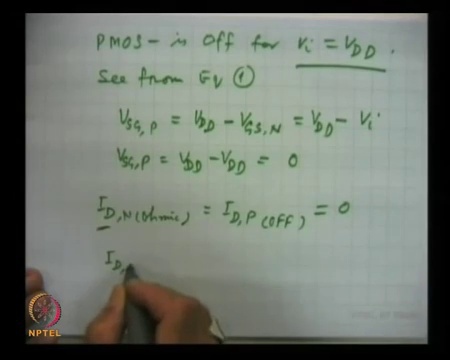 PMOS - is Off for Vi = VDD .
See from Eq ①
VSG,P = VDD - VGS,N = VDD - Vi
VSG,P = VDD - VDD = 0
ID,N(Ohmic) = ID,P(OFF) = 0
ID,
NPTEL